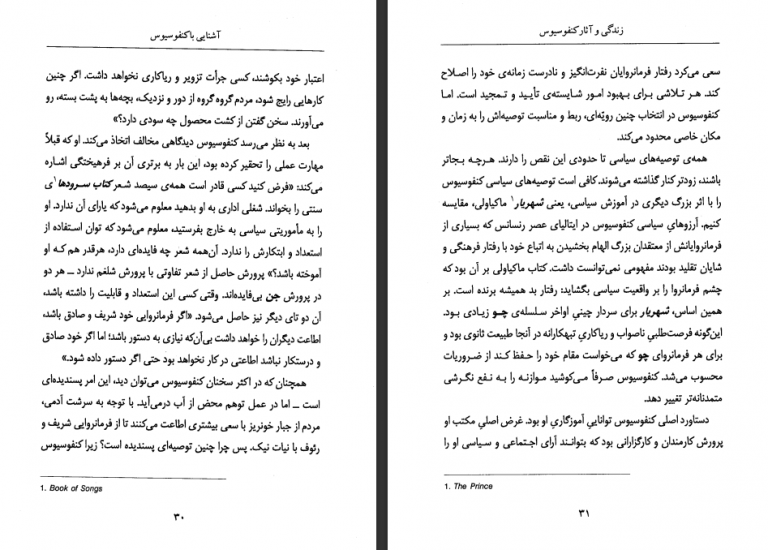 آشنایی با کنفوسیوس
اعتبار خود بکوشند، کسی جرأت تزویر و ریاکاری نخواهد داشت. اگر چنین
کارهایی رایج شود، مردم گروه گروه از دور و نزدیک، بچه‌ها به پشت بسته، رو
می‌آورند. سخن گفتن از کشت محصول چه سودی دارد؟»
بعد به نظر می‌رسد کنفوسیوس دیدگاهی مخالف اتخاذ می‌کند. او که قبلاً
مهارت عملی را تحقیر کرده بود، این بار به برتری آن بر فرهیختگی اشاره
می‌کند: «فرض کنید کسی قادر است همه‌ی سیصد شعر کتاب سرودها¹ی
سنتی را بخواند. شغلی اداری به او بدهید معلوم می‌شود که یارای آن ندارد. او
را به مأموریتی سیاسی به خارج بفرستید، معلوم می‌شود که توان استفاده از
استعداد و ابتکارش را ندارد. آن‌همه شعر چه فایده‌ای دارد، هرقدر هم که او
آموخته باشد؟» پرورش حاصل از شعر تفاوتی با پرورش شلغم ندارد ــ هر دو
در پرورش جن بی‌فایده‌اند. وقتی کسی این استعداد و قابلیت را داشته باشد،
آن دو تای دیگر نیز حاصل می‌شود. «اگر فرمانروایی خود شریف و صادق باشد،
اطاعت دیگران را خواهد داشت بی‌آن‌که نیازی به دستور باشد؛ اما اگر خود صادق
و درستکار نباشد اطاعتی در کار نخواهد بود حتی اگر دستور داده شود.»
همچنان که در اکثر سخنان کنفوسیوس می‌توان دید، این امر پسندیده‌ای
است ــ اما در عمل توهم محض از آب درمی‌آید. با توجه به سرشت آدمی،
مردم از جبار خونریز با سعی بیشتری اطاعت می‌کنند تا از فرمانروایی شریف و
رئوف با نیات نیک. پس چرا چنین توصیه‌ای پسندیده است؟ زیرا کنفوسیوس
1. Book of Songs
۳۰
زندگی و آثار کنفوسیوس
سعی می‌کرد رفتار فرمانروایان نفرت‌انگیز و نادرست زمانه‌ی خود را اصلاح
کند. هر تلاشی برای بهبود امور شایسته‌ی تأیید و تمجید است. اما
کنفوسیوس در انتخاب چنین رویّه‌ای، ربط و مناسبت توصیه‌اش را به زمان و
مکان خاصی محدود می‌کند.
همه‌ی توصیه‌های سیاسی تا حدودی این نقص را دارند. هرچه بجاتر
باشند، زودتر کنار گذاشته می‌شوند. کافی است توصیه‌های سیاسی کنفوسیوس
را با اثر بزرگ دیگری در آموزش سیاسی، یعنی شهریار¹ ماکیاولی، مقایسه
کنیم. آرزوهای سیاسی کنفوسیوس در ایتالیای عصر رنسانس که بسیاری از
فرمانروایانش از معتقدان بزرگ الهام بخشیدن به اتباع خود با رفتار فرهنگی و
شایان تقلید بودند مفهومی نمی‌توانست داشت. کتاب ماکیاولی بر آن بود که
چشم فرمانروا را بر واقعیت سیاسی بگشاید: رفتار بد همیشه برنده است. بر
همین اساس، شهریار برای سردار چینیِ اواخر سلسله‌ی چو زیادی بود.
این‌گونه فرصت‌طلبیِ ناصواب و ریاکاریِ تبهکارانه در آنجا طبیعت ثانوی بود و
برای هر فرمانروای چو که می‌خواست مقام خود را حفظ کند از ضروریات
محسوب می‌شد. کنفوسیوس صرفاً می‌کوشید موازنه را به نفع نگرشی
متمدنانه‌تر تغییر دهد.
دستاورد اصلی کنفوسیوس تواناییِ آموزگاری او بود. غرض اصلیِ مکتب او
پرورش کارمندان و کارگزارانی بود که بتوانند آرای اجتماعی و سیاسی او را
1. The Prince
۳۱